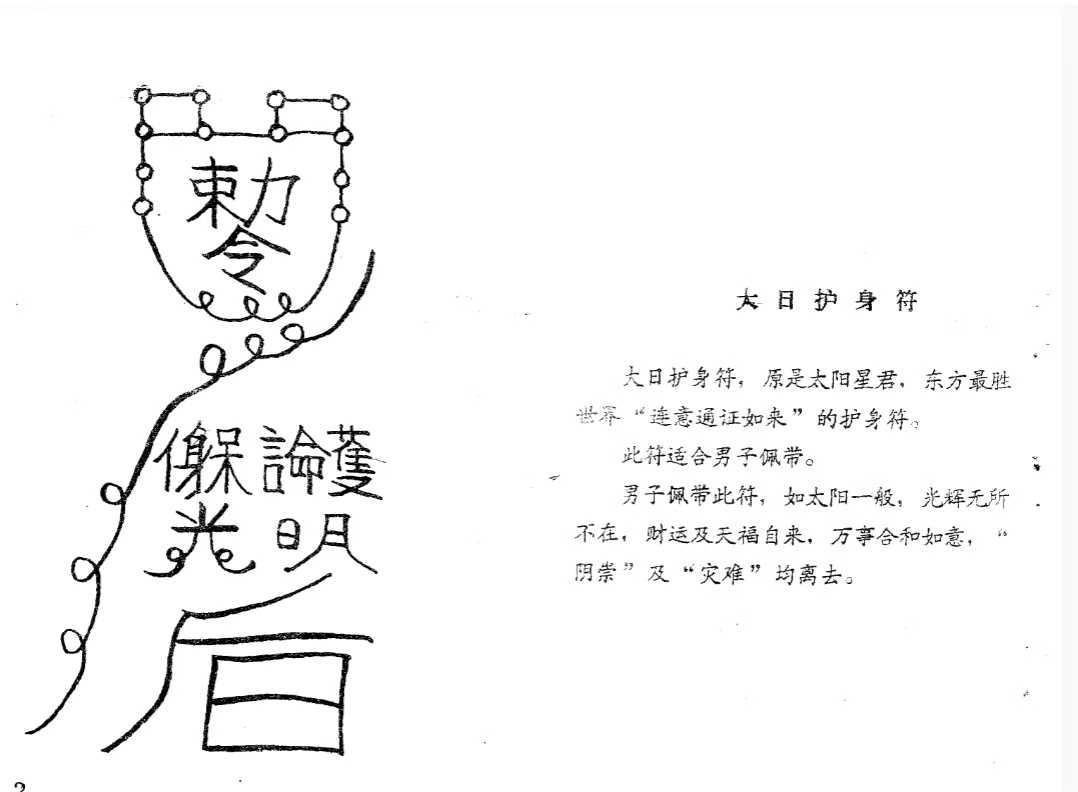 勅
令
光明
2
大日护身符
大日护身符，原是太阳星君，东方最胜
世界“连意通证如来”的护身符。
此符适合男子佩带。
男子佩带此符，如太阳一般，光辉无所
不在，财运及天福自来，万事合和如意，“
阴崇”及“灾难”均离去。